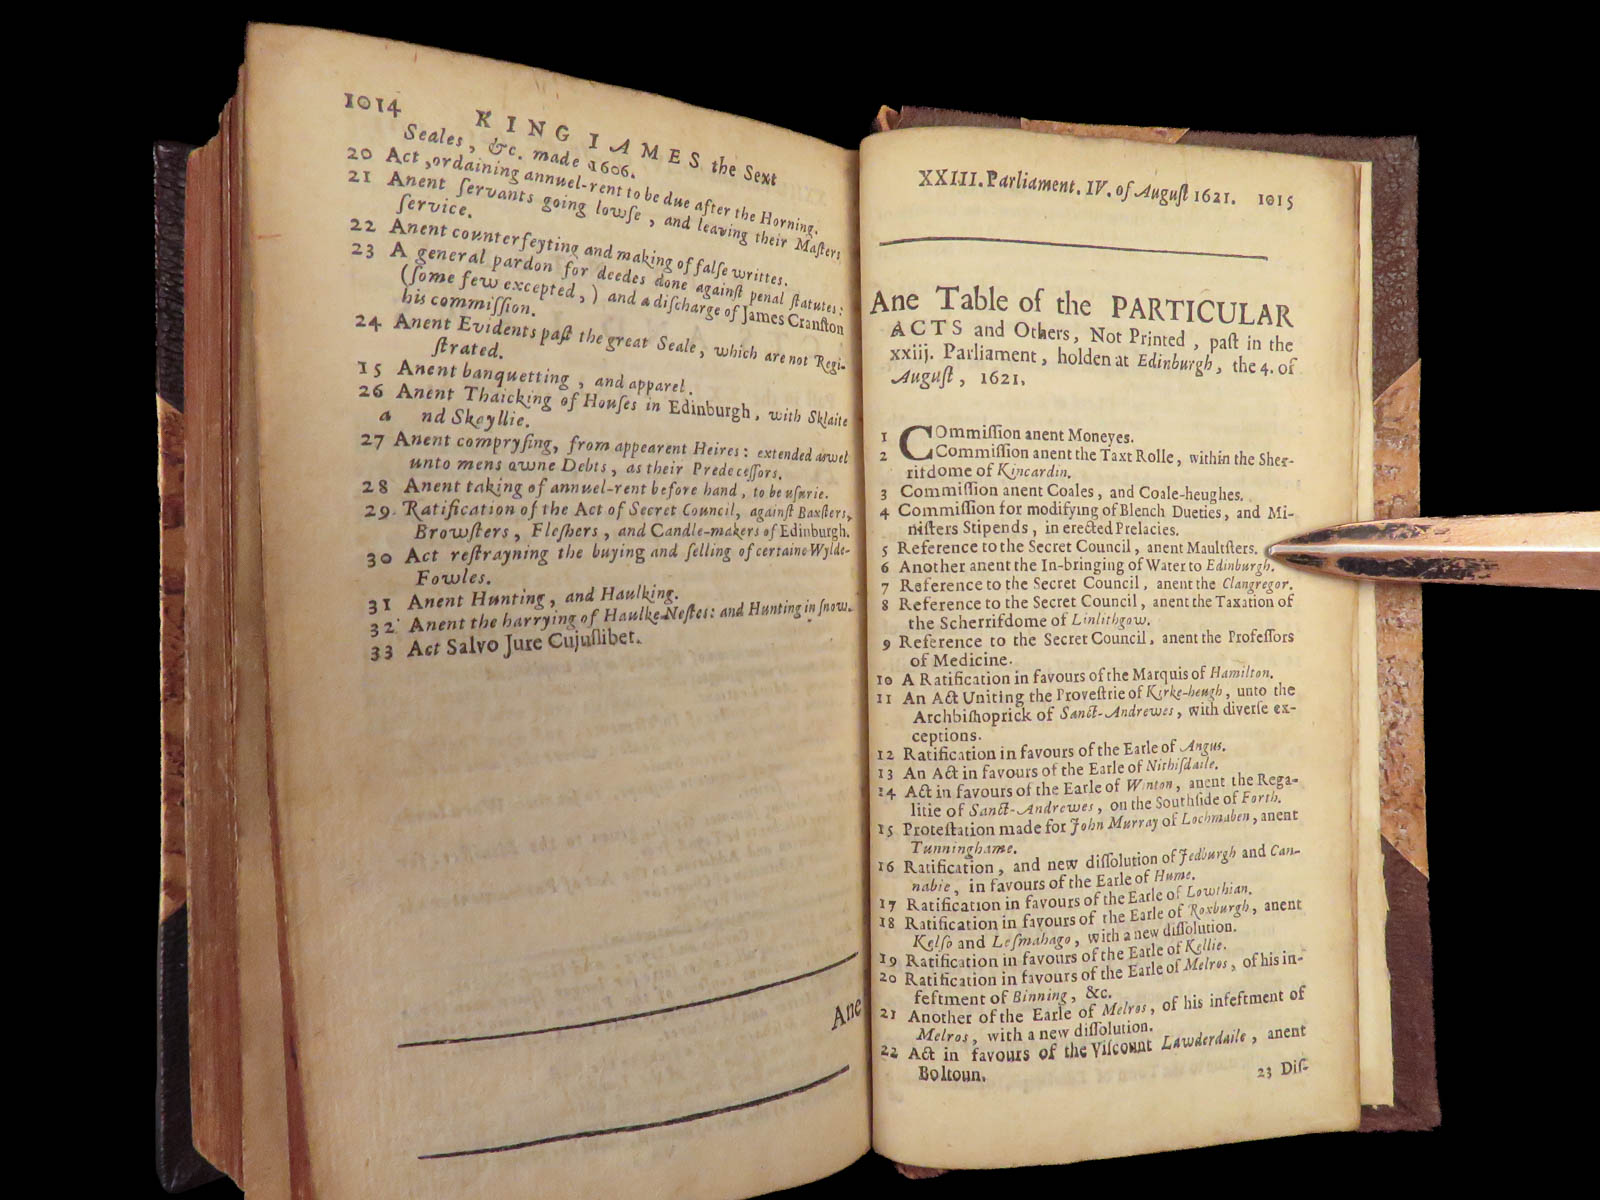 1014 KING IAMES the Sext
Seales, &c. made 1606.
20 Act, ordaining annuel-rent to be due after the Horning.
21 Anent ſervants going lowſe, and leaving their Maſters
ſervice.
22 Anent counterfeyting and making of falſe writtes.
23 A general pardon for deedes done againſt penal ſtatutes:
(ſome few excepted,) and a diſcharge of James Cranſton
his commiſſion.
24 Anent Evidents paſt the great Seale, which are not Regi-
ſtrated.
15 Anent banquetting, and apparel.
26 Anent Thaicking of Houſes in Edinburgh, with Sklaite
a nd Skayllie.
27 Anent compryſing, from appearent Heires: extended aswel
unto mens owne Debts, as their Predeceſſors.
28 Anent taking of annuel-rent before hand, to be uſurie.
29. Ratification of the Act of Secret Council, againſt Baxſters,
Browſters, Fleſhers, and Candle-makers of Edinburgh.
30 Act reſtrayning the buying and ſelling of certaine Wylde-
Fowles.
31 Anent Hunting, and Haulking.
32 Anent the harrying of Haulke-Neſtes: and Hunting in ſnow.
33 Act Salvo Jure Cujuſlibet.
Ane
XXIII. Parliament. IV. of Auguſt 1621. 1015
Ane Table of the PARTICULAR
ACTS and Others, Not Printed, paſt in the
xxiij. Parliament, holden at Edinburgh, the 4. of
Auguſt, 1621.
1 COmmiſſion anent Moneyes.
2 Commiſſion anent the Taxt Rolle, within the Sher-
rifdome of Kincardin.
3 Commiſſion anent Coales, and Coale-heughes.
4 Commiſſion for modifying of Blench Dueties, and Mi-
niſters Stipends, in erected Prelacies.
5 Reference to the Secret Council, anent Maultſters.
6 Another anent the In-bringing of Water to Edinburgh.
7 Reference to the Secret Council, anent the Clangregor.
8 Reference to the Secret Council, anent the Taxation of
the Scherrifdome of Linlithgow.
9 Reference to the Secret Council, anent the Profeſſors
of Medicine.
10 A Ratification in favours of the Marquis of Hamilton.
11 An Act Uniting the Proveſtrie of Kirke-heugh, unto the
Archbiſhoprick of Sanct-Andrewes, with diverſe ex-
ceptions.
12 Ratification in favours of the Earle of Angus.
13 An Act in favours of the Earle of Nithiſdaile.
14 Act in favours of the Earle of Winton, anent the Rega-
litie of Sanct-Andrewes, on the Southſide of Forth.
15 Proteſtation made for John Murray of Lochmaben, anent
Tunninghame.
16 Ratification, and new diſſolution of Jedburgh and Can-
nabie, in favours of the Earle of Hume.
17 Ratification in favours of the Earle of Lowthian.
18 Ratification in favours of the Earle of Roxburgh, anent
Kelſo and Leſmahago, with a new diſſolution.
19 Ratification in favours of the Earle of Kellie.
20 Ratification in favours of the Earle of Melros, of his in-
feftment of Binning, &c.
21 Another of the Earle of Melros, of his infeftment of
Melros, with a new diſſolution.
22 Act in favours of the Viſcount Lawderdaile, anent
Boltoun.
23 Diſ-